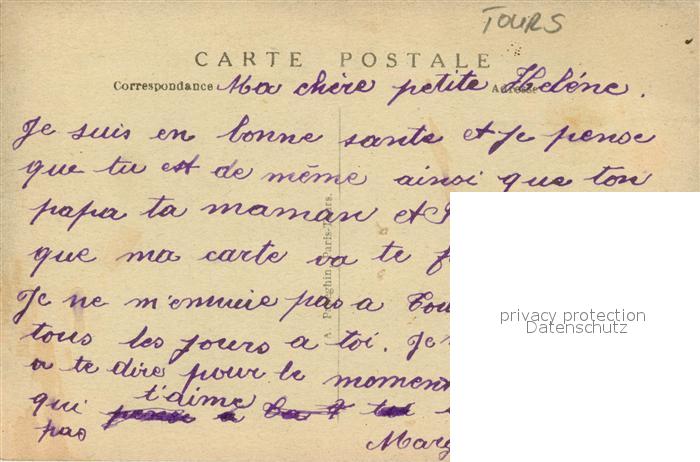 TOURS
CARTE POSTALE
Correspondance Ma chère petite Heléne. Adresse
Je suis en bonne sante et Je pense
que tu est de même ainsi que ton
papa ta maman et
que ma carte va te
Je ne m'ennuie pas a
tous les jours a toi. Je
a te dire pour le moment
qui t'aime
pas
Marg
A. Papeghin, Paris-Tours.
privacy protection
Datenschutz